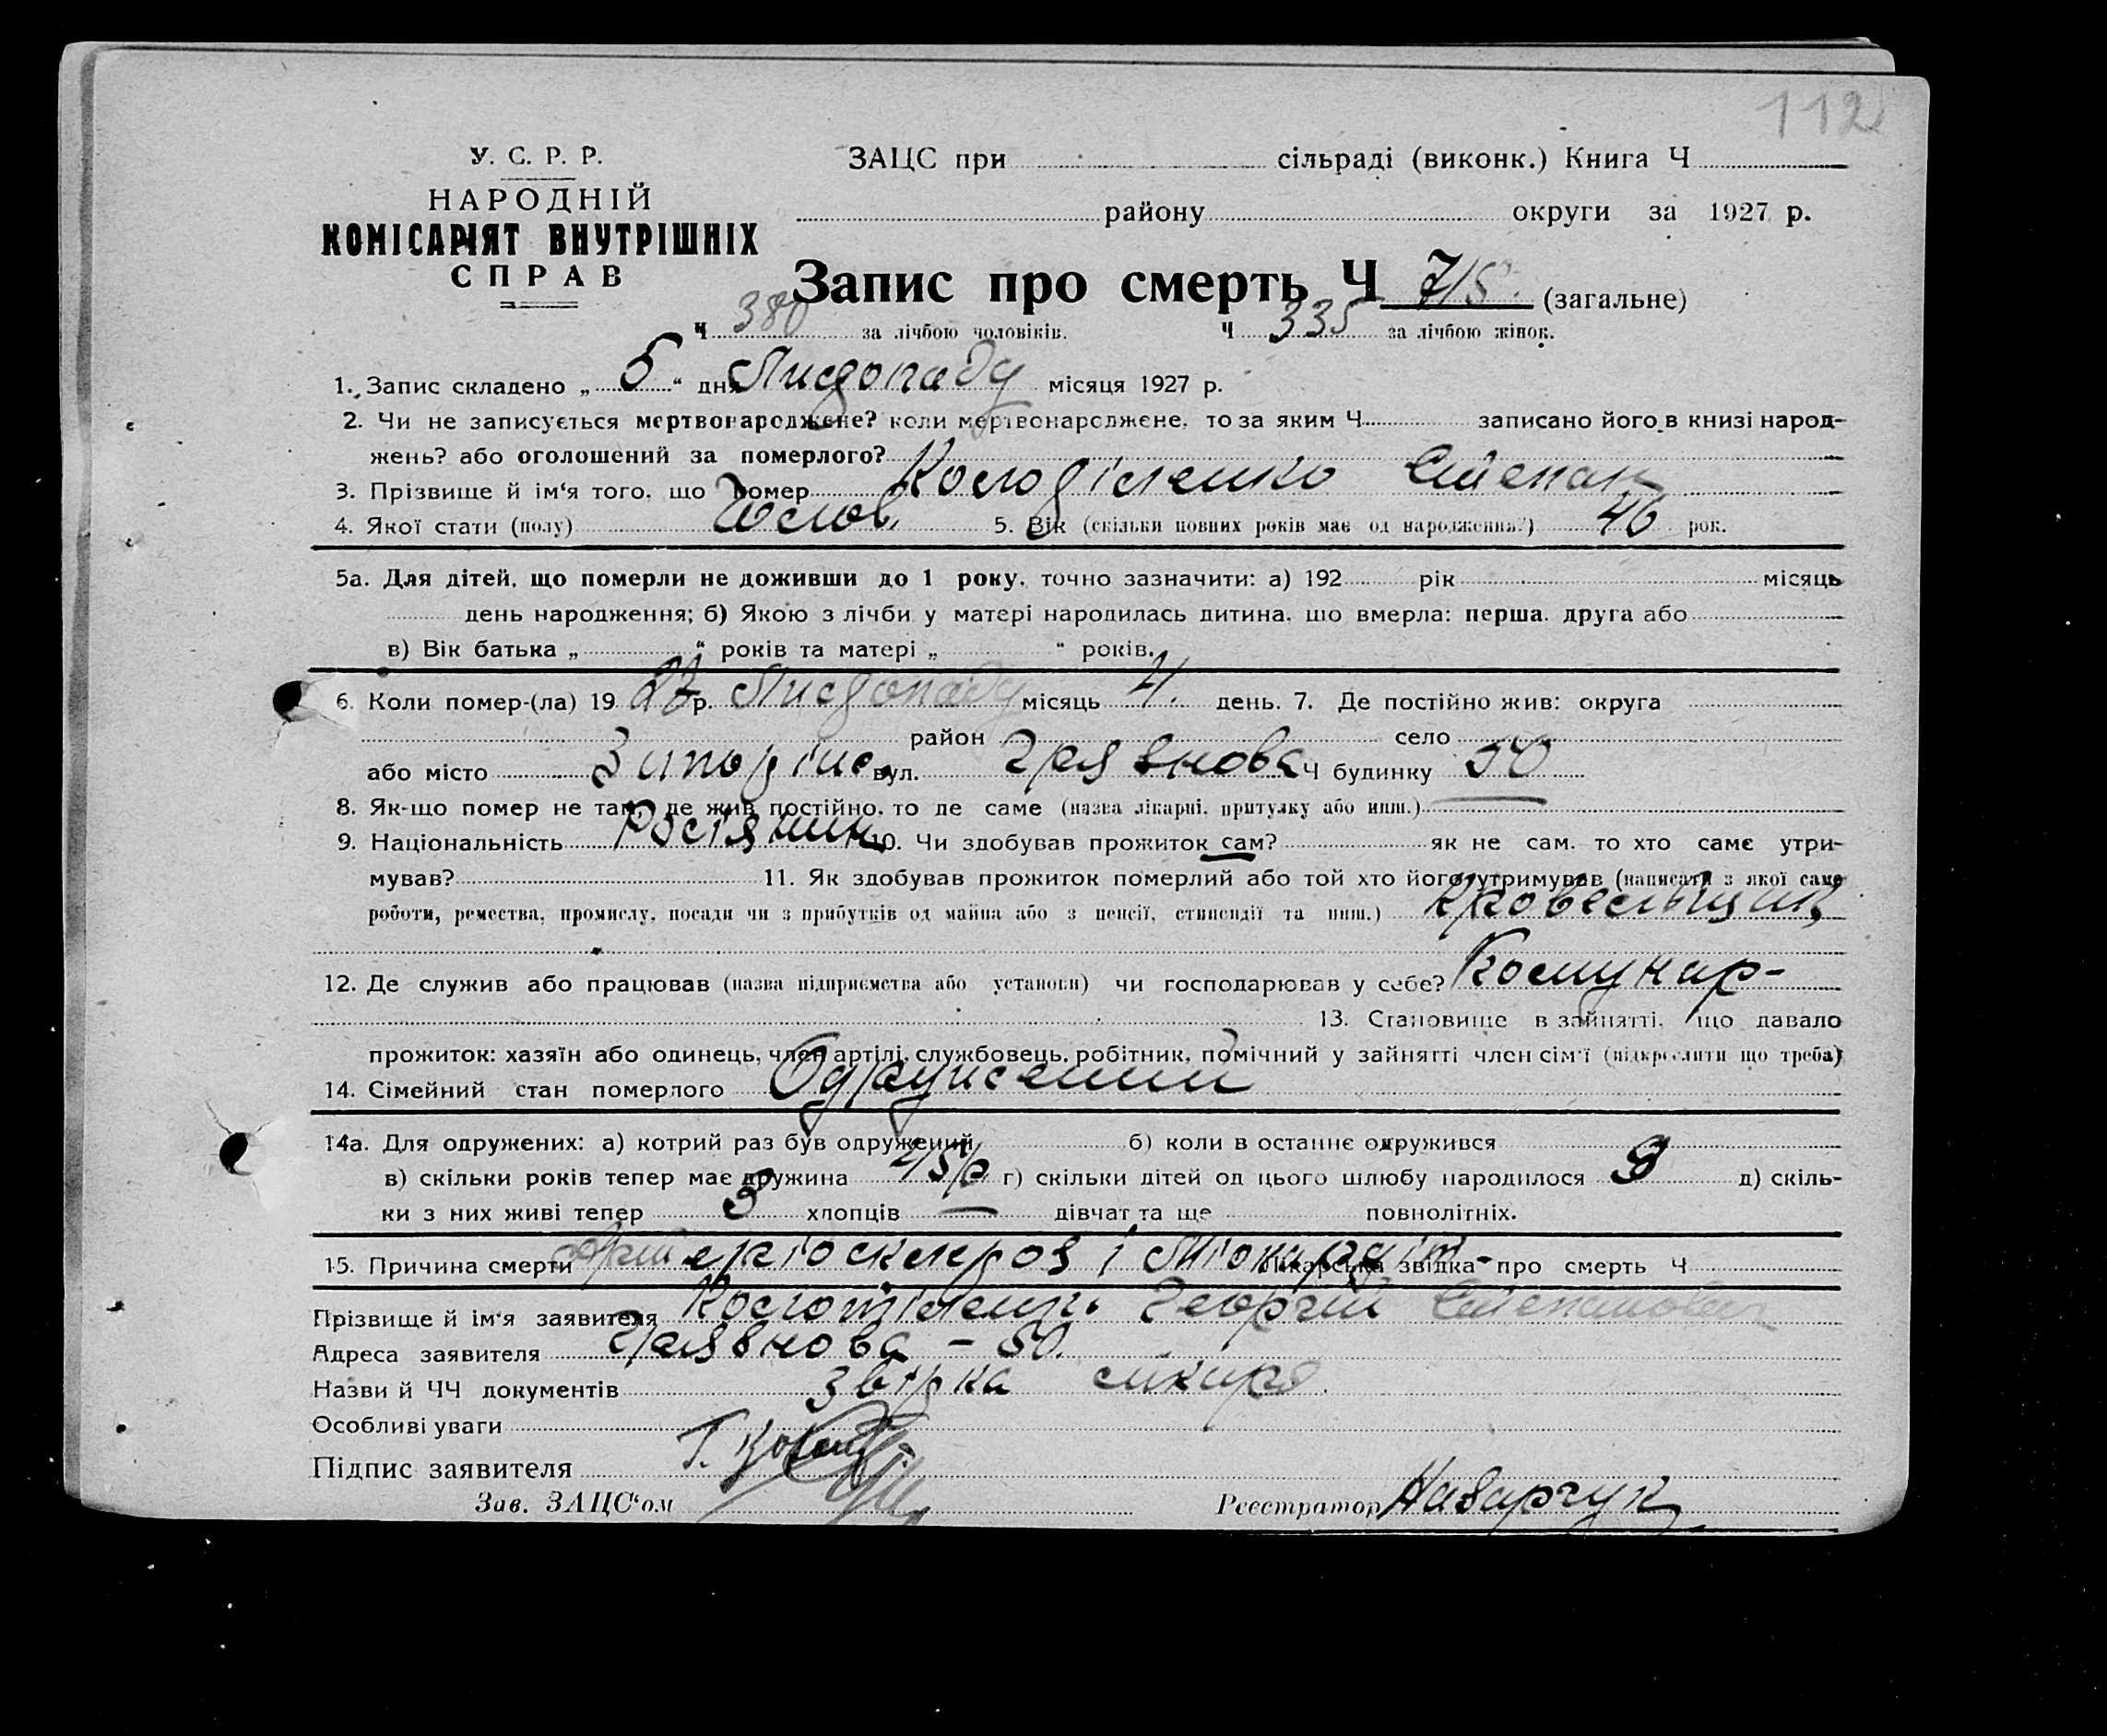 112
У. С. Р. Р.
НАРОДНІЙ
КОМІСАРІЯТ ВНУТРІШНІХ
СПРАВ
ЗАЦС при сільраді (виконк.) Книга Ч
району округи за 1927 р.
Запис про смерть Ч 715 (загальне)
Ч 380 за лічбою чоловіків. Ч 335 за лічбою жінок.
1. Запис складено „ 5 “ дня Листопаду місяця 1927 р.
2. Чи не записується мертвонароджене? коли мертвонароджене, то за яким Ч записано його в книзі народ-
жень? або оголошений за померлого?
3. Прізвище й ім‘я того, що помер Колоділенко Степан
4. Якої стати (полу) Чолов. 5. Вік (скільки повних років має од народження?) 46 рок.
5а. Для дітей, що померли не доживши до 1 року, точно зазначити: а) 192 рік місяць
день народження; б) Якою з лічби у матері народилась дитина, що вмерла: перша, друга або
в) Вік батька „ “ років та матері „ “ років.
6. Коли помер-(ла) 19 27 р. Листопаду місяць 4. день. 7. Де постійно жив: округа
район село
або місто Запоріж. вул. Грязнова Ч будинку 50
8. Як-що помер не там, де жив постійно, то де саме (назва лікарні, притулку або инш.) —
9. Національність Росіянин 10. Чи здобував прожиток сам? як не сам, то хто саме утри-
мував? 11. Як здобував прожиток померлий або той хто його утримував (написати з якої саме
роботи, ремества, промислу, посади чи з прибутків од майна або з пенсії, стипендії та инш.) Кровельщик
12. Де служив або працював (назва підприємства або установи) чи господарював у себе? Комунар-
13. Становище в зайнятті, що давало
прожиток: хазяїн або одинець, член артілі, службовець, робітник, помічний у зайнятті член сім‘ї (підкреслити що треба)
14. Сімейний стан померлого Одружений
14а. Для одружених: а) котрий раз був одружений б) коли в останнє одружився
в) скільки років тепер має дружина 45 р г) скільки дітей од цього шлюбу народилося 9 д) скіль-
ки з них живі тепер хлопців — дівчат та ще повнолітніх.
15. Причина смерти Артеріосклероз і Міокардіт- Лікарська звідка про смерть Ч
Прізвище й ім‘я заявителя Георгій Степанович
Адреса заявителя Грязнова - 50.
Назви й ЧЧ документів Звідка лікаря.
Особливі уваги
Підпис заявителя Г.
Зав. ЗАЦС‘ом
Реєстратор Назарчук